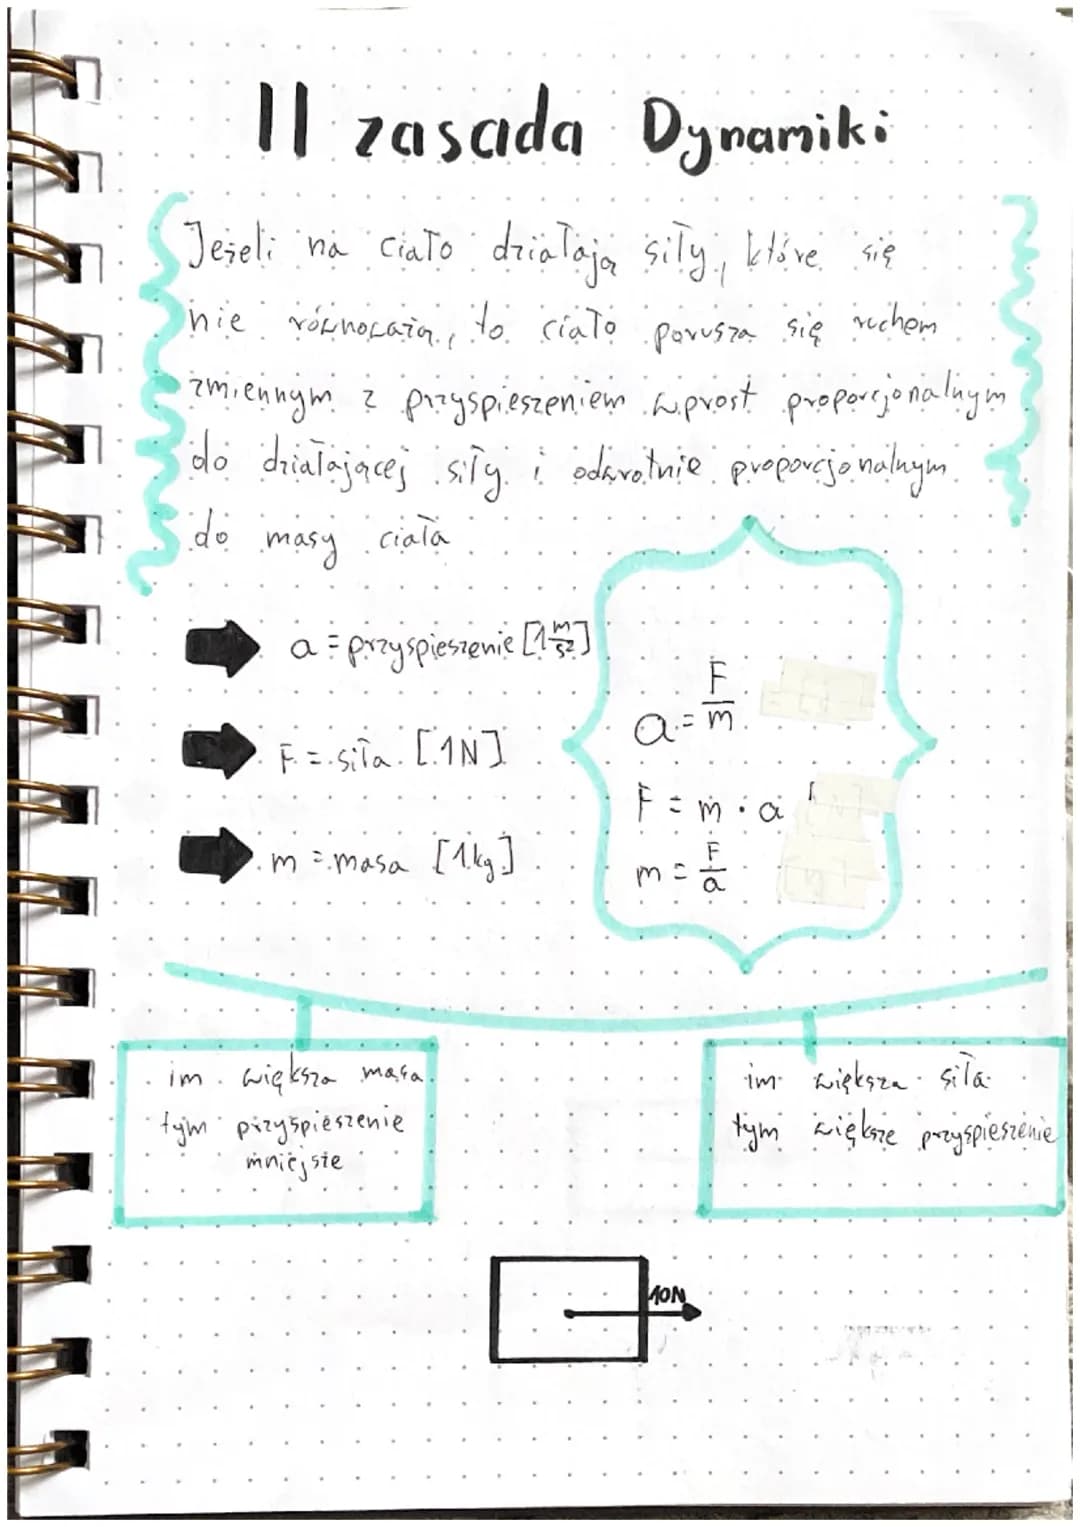 II zasada Dynamiki
Jeżeli na ciało działają siły, które się
nie równoważą, to ciało porusza się ruchem
zmiennym z przyspieszeniem wprost proporcjonalnym
do działającej siły i odwrotnie proporcjonalnym
do masy ciała
a = przyspieszenie [1 m/s2]
F = siła [1N]
m = masa [1kg]
a = F/m
F = m · a
m = F/a
im większa masa
tym przyspieszenie
mniejsze
im większa siła
tym większe przyspieszenie
10N